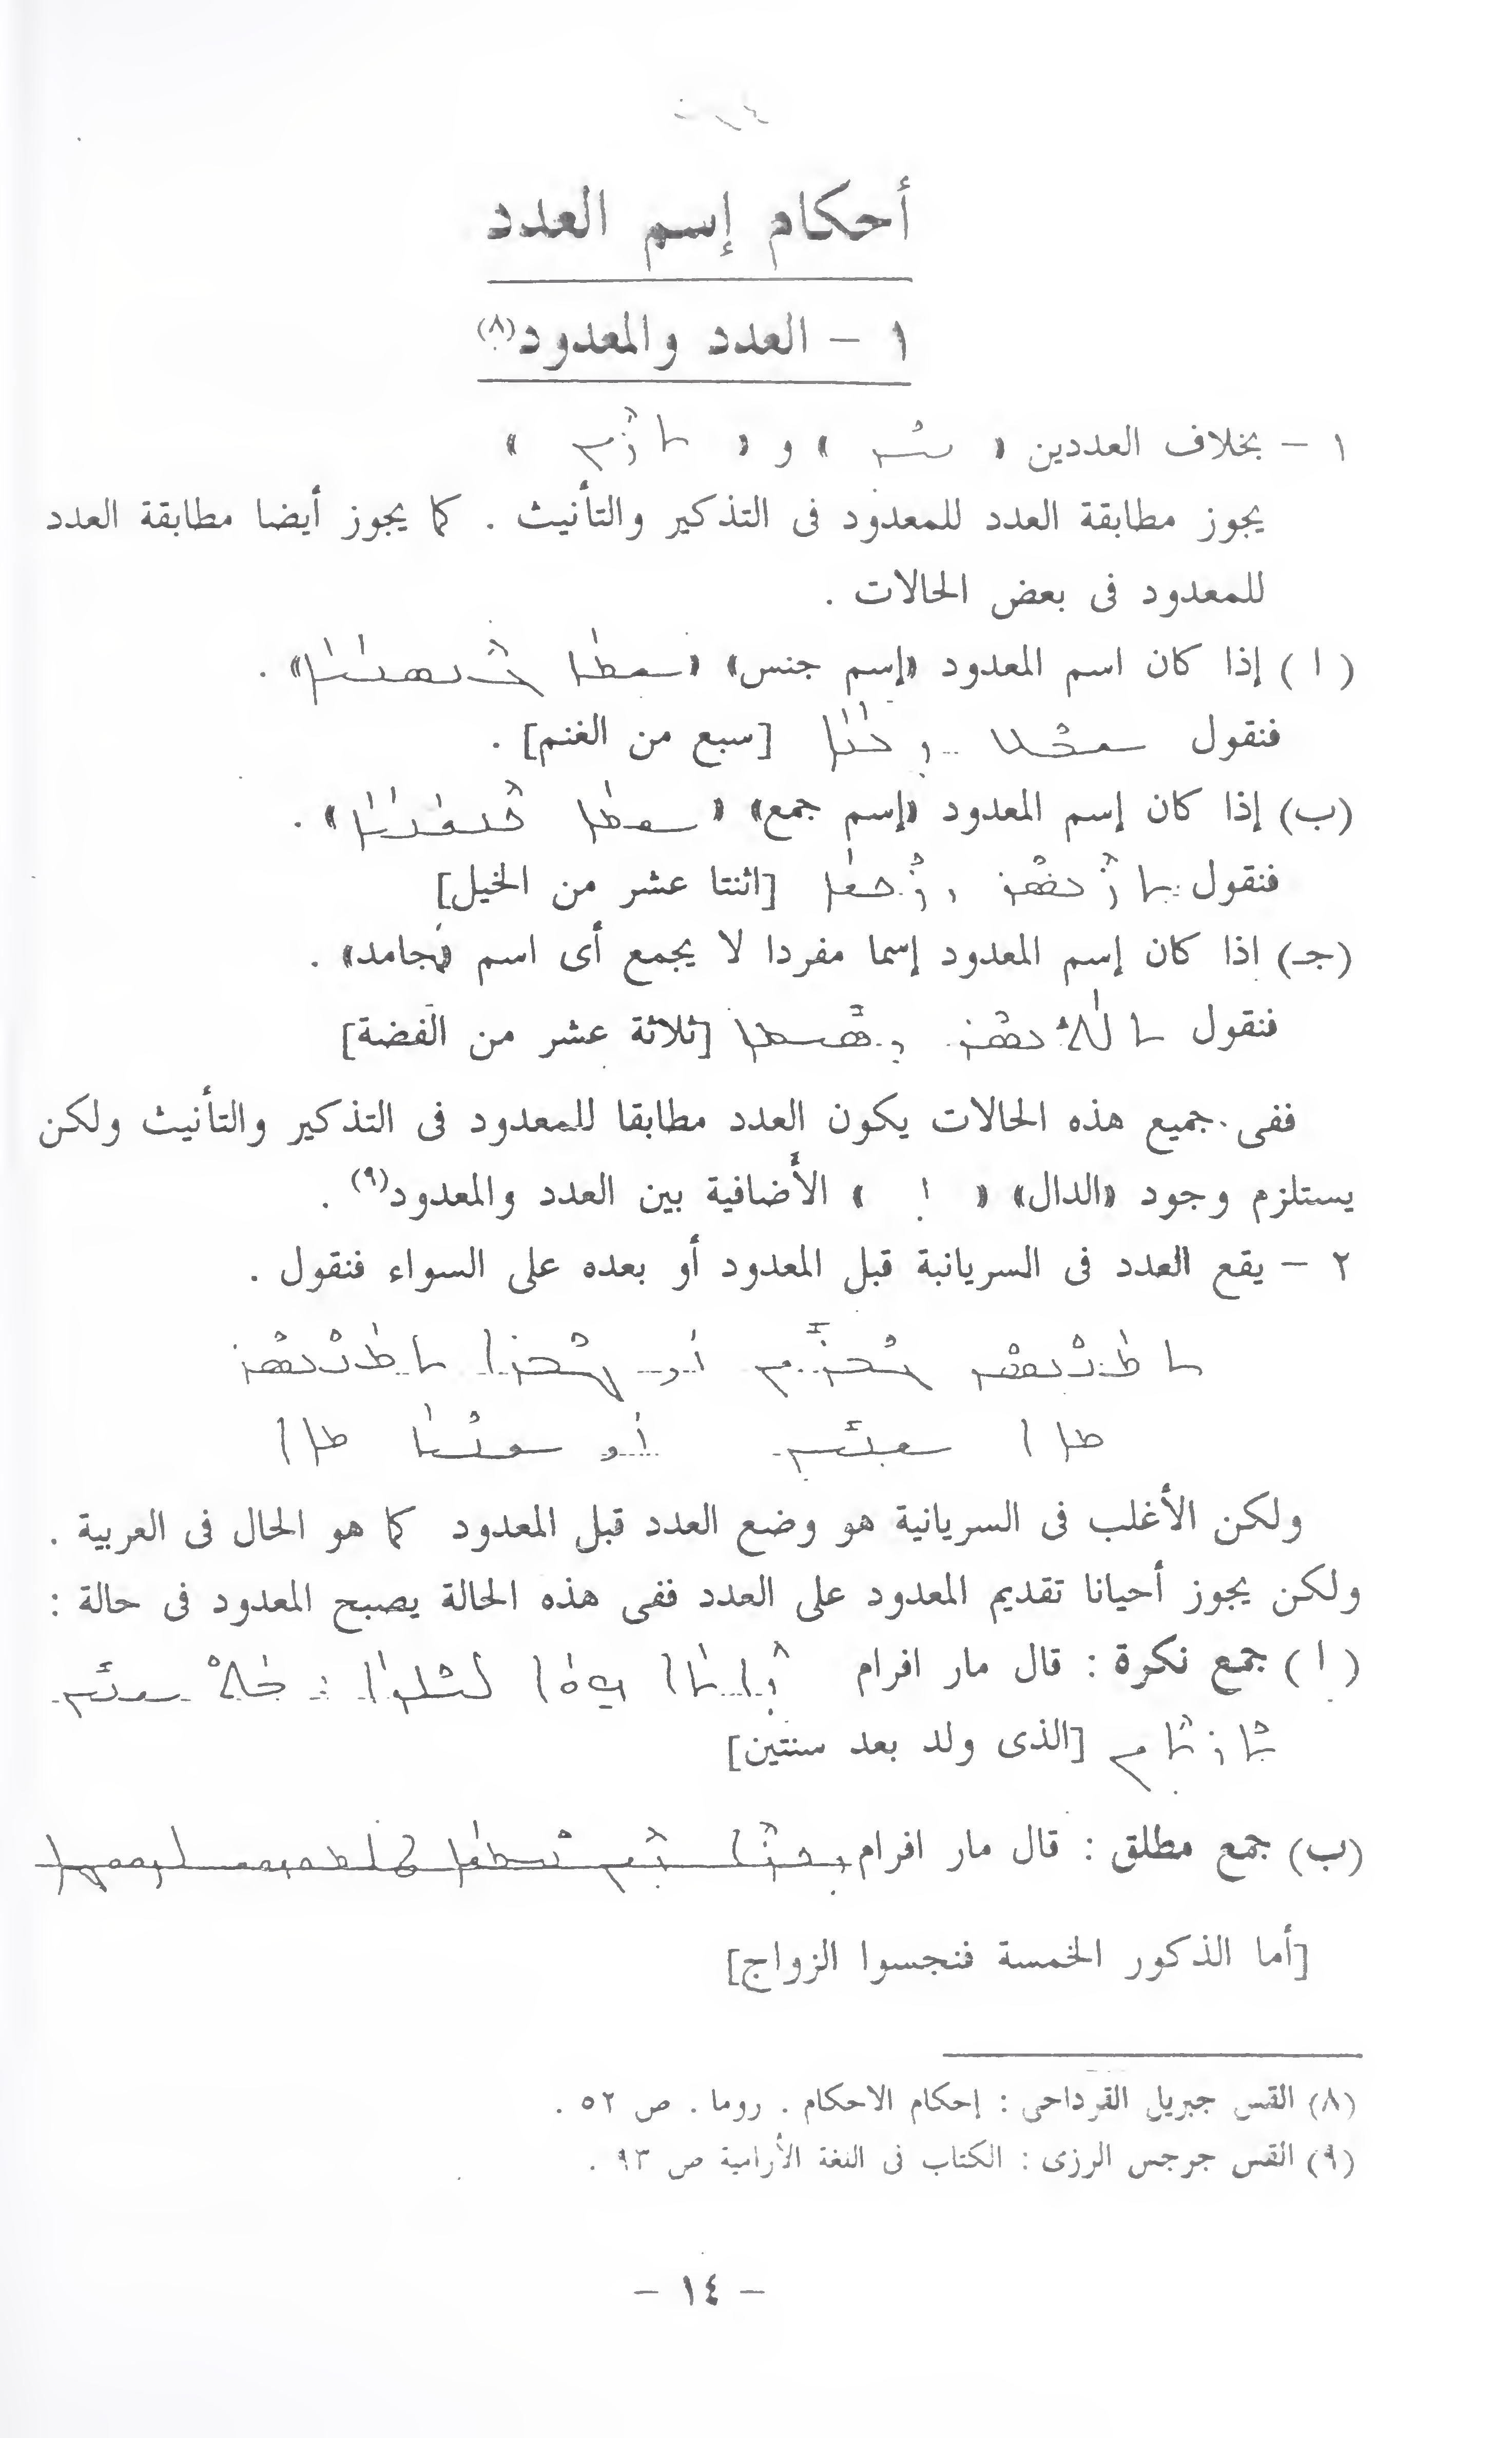 أحكام إسم العدد
١ – العدد والمعدود(٨)
١ – بخلاف العددين « ܚܕ » و « ܬܪܝܢ »
يجوز مطابقة العدد للمعدود فى التذكير والتأنيث . كما يجوز أيضا مطابقة العدد
للمعدود فى بعض الحالات .
( ا ) إذا كان اسم المعدود «إسم جنس» « ܫܡܐ ܓܢܣܢܝܐ» .
فنقول ܫܒܥ ܕܥܢܐ [سبع من الغنم] .
(ب) إذا كان إسم المعدود «إسم جمع» « ܫܡܐ » .
فنقول ܬܪܬܥܣܪ̈ܐ ܕܪܟܫܐ [اثنتا عشر من الخيل]
(جـ) إذا كان إسم المعدود إسما مفردا لا يجمع أى اسم «جامد» .
فنقول ܕܣܐܡܐ [ثلاثة عشر من الفضة]
ففى جميع هذه الحالات يكون العدد مطابقا للمعدود فى التذكير والتأنيث ولكن
يستلزم وجود «الدال» « ܕ » الأضافية بين العدد والمعدود(٩) .
٢ – يقع العدد فى السريانية قبل المعدود أو بعده على السواء فنقول .
ܬܡܢܥܣܪ ܓܒܪܝܢ ܐܘ ܓܒܪܐ ܬܡܢܥܣܪ
ܡܐܐ ܫܢܝܢ ܐܘ ܫܢܝܐ ܡܐܐ
ولكن الأغلب فى السريانية هو وضع العدد قبل المعدود كما هو الحال فى العربية .
ولكن يجوز أحيانا تقديم المعدود على العدد ففى هذه الحالة يصبح المعدود فى حالة :
( ا ) جمع نكرة : قال مار افرام ܗܘܐ ܫܢܝܢ
ܬܪܬܝܢ [الذى ولد بعد سنتين]
(ب) جمع مطلق : قال مار افرام
[أما الذكور الخمسة فنجسوا الزواج]
(٨) القس جبريل القرداحى : إحكام الاحكام . روما . ص ٥٢ .
(٩) القس جرجس الرزى : الكتاب فى اللغة الأرامية ص ٩٣ .
– ١٤ –